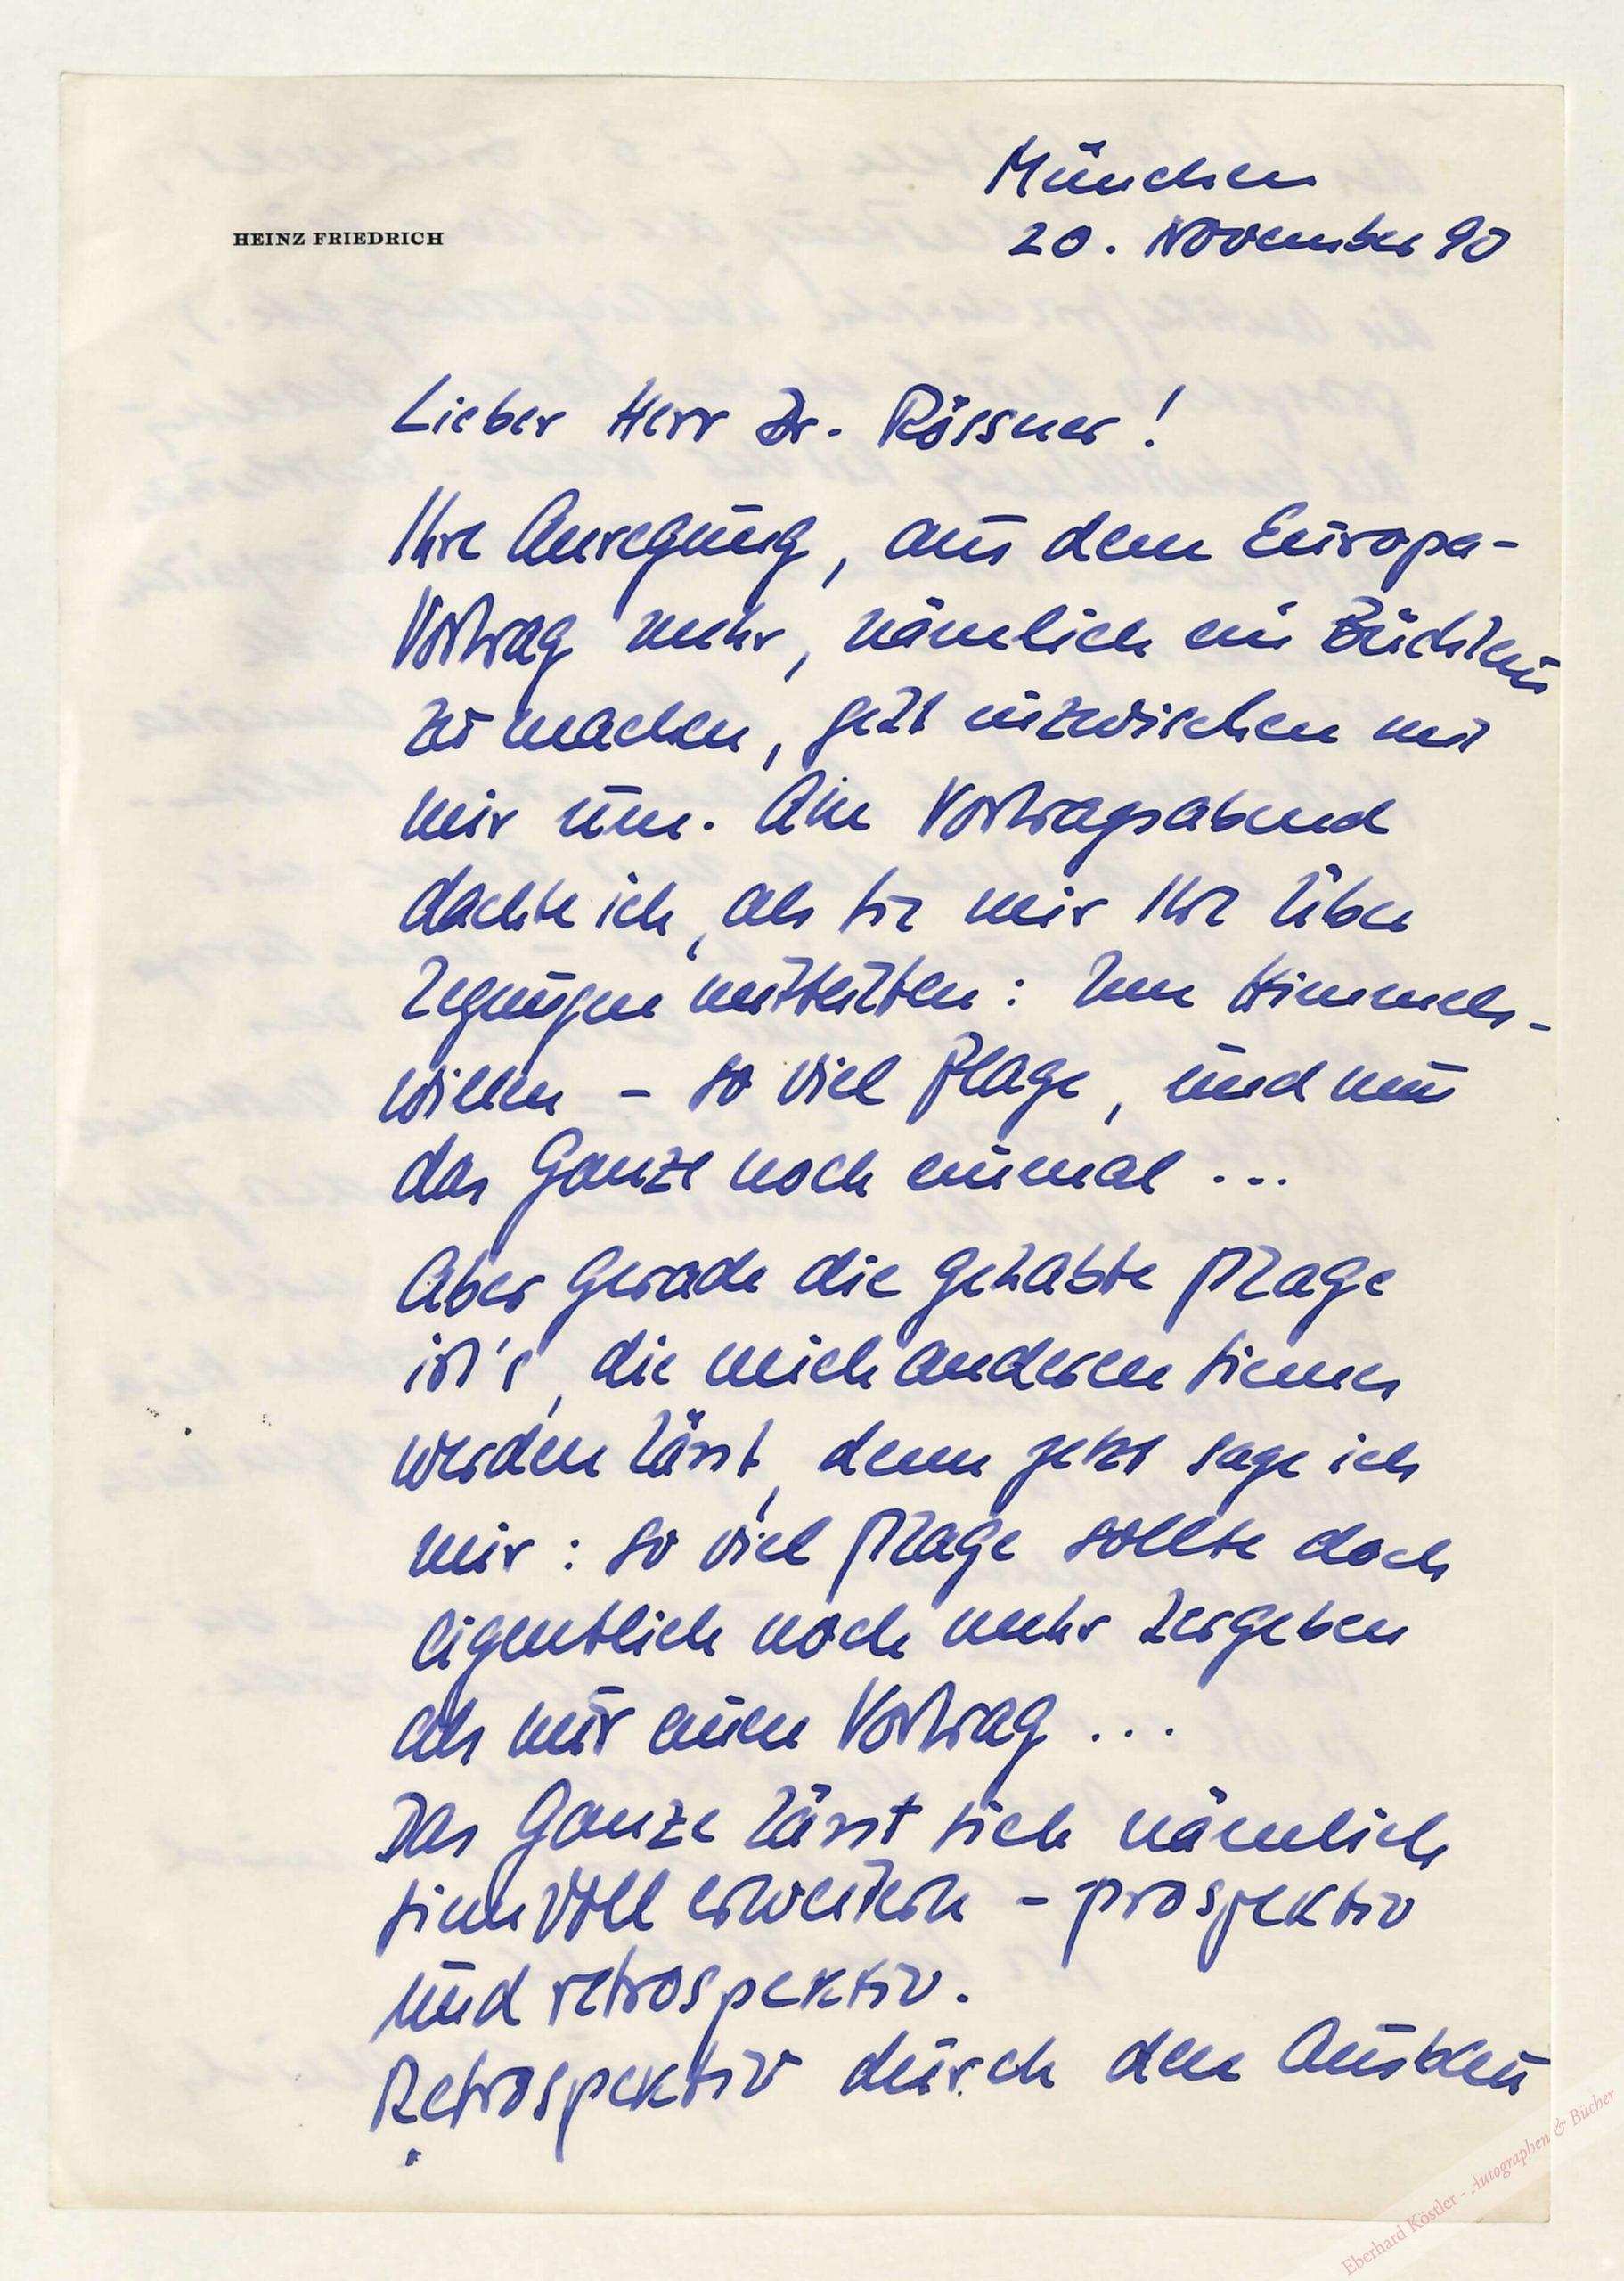 HEINZ FRIEDRICH
München
20. November 90
Lieber Herr Dr. Rössner!
Ihre Anregung, aus dem Europa-
Vortrag mehr, nämlich ein Büchlein
zu machen, geht inzwischen mit
mir um. Am Vortragsabend
dachte ich, als Sie mir Ihre Über
legungen mitteilten: Um Himmels-
willen – so viel Plage, und nun
das Ganze noch einmal ...
Aber gerade die gehabte Plage
ist's, die mich anderen Sinnes
werden lässt, denn jetzt sage ich
mir: so viel Plage sollte doch
eigentlich noch mehr hergeben
als nur einen Vortrag ...
Das Ganze lässt sich nämlich
sinnvoll erweitern – prospektiv
und retrospektiv.
Retrospektiv durch den Ausbau
Eberhard Köstler - Autographen & Bücher